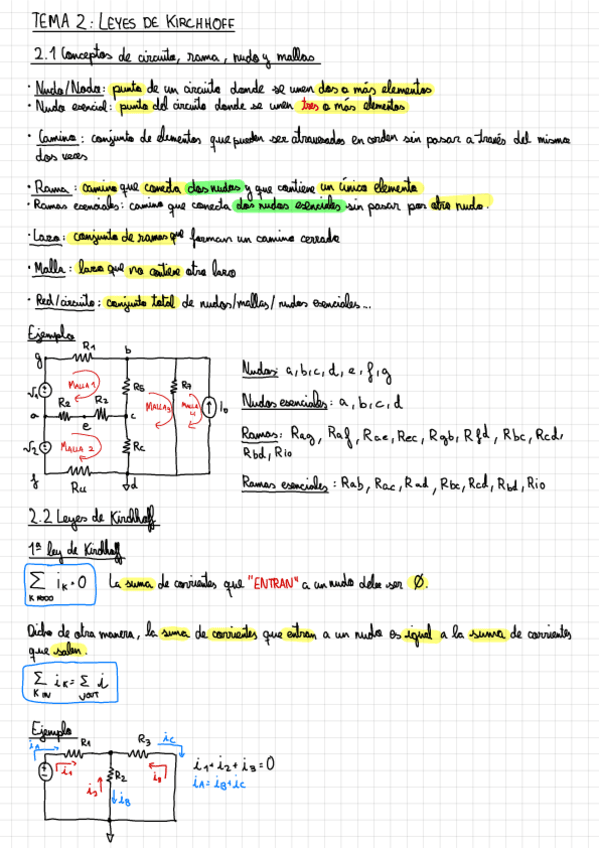 TEMA 2: LEYES DE KIRCHHOFF
2.1 Conceptos de circuito, rama, nudo y mallas
· Nudo/Nodo: punto de un circuito donde se unen dos o más elementos
· Nudo esencial: punto del circuito donde se unen tres o más elementos
· Camino: conjunto de elementos que pueden ser atravesados en orden sin pasar a través del mismo
dos veces
· Rama: camino que conecta dos nudos y que contiene un único elemento
· Ramas esenciales: camino que conecta dos nudos esenciales sin pasar por otro nudo.
· Lazo: conjunto de ramas que forman un camino cerrado
· Malla: lazo que no contiene otro lazo
· Red/circuito: conjunto total de nudos/mallas/nudos esenciales...
Ejemplo
g R1 b
MALLA 1 R5 R7
V1 MALLA 3 MALLA 4 Io
a R2 R2 c
e
V2 MALLA 2 Rc
f R4 d
Nudos: a, b, c, d, e, f, g
Nudos esenciales: a, b, c, d
Ramas: Rag, Raf, Rae, Rec, Rgb, Rfd, Rbc, Rcd,
Rbd, Rio
Ramas esenciales: Rab, Rac, Rad, Rbc, Rcd, Rbd, Rio
2.2 Leyes de Kirchhoff
1ª ley de Kirchhoff
Σ iK = 0 La suma de corrientes que "ENTRAN" a un nudo debe ser Ø.
K NODO
Dicho de otra manera, la suma de corrientes que entran a un nudo es igual a la suma de corrientes
que salen.
Σ iK = Σ i
K IN JOUT
Ejemplo
iA R1 R3 iC
i1 i3
R2
i2 iB
i1 + i2 + i3 = 0
iA = iB + iC